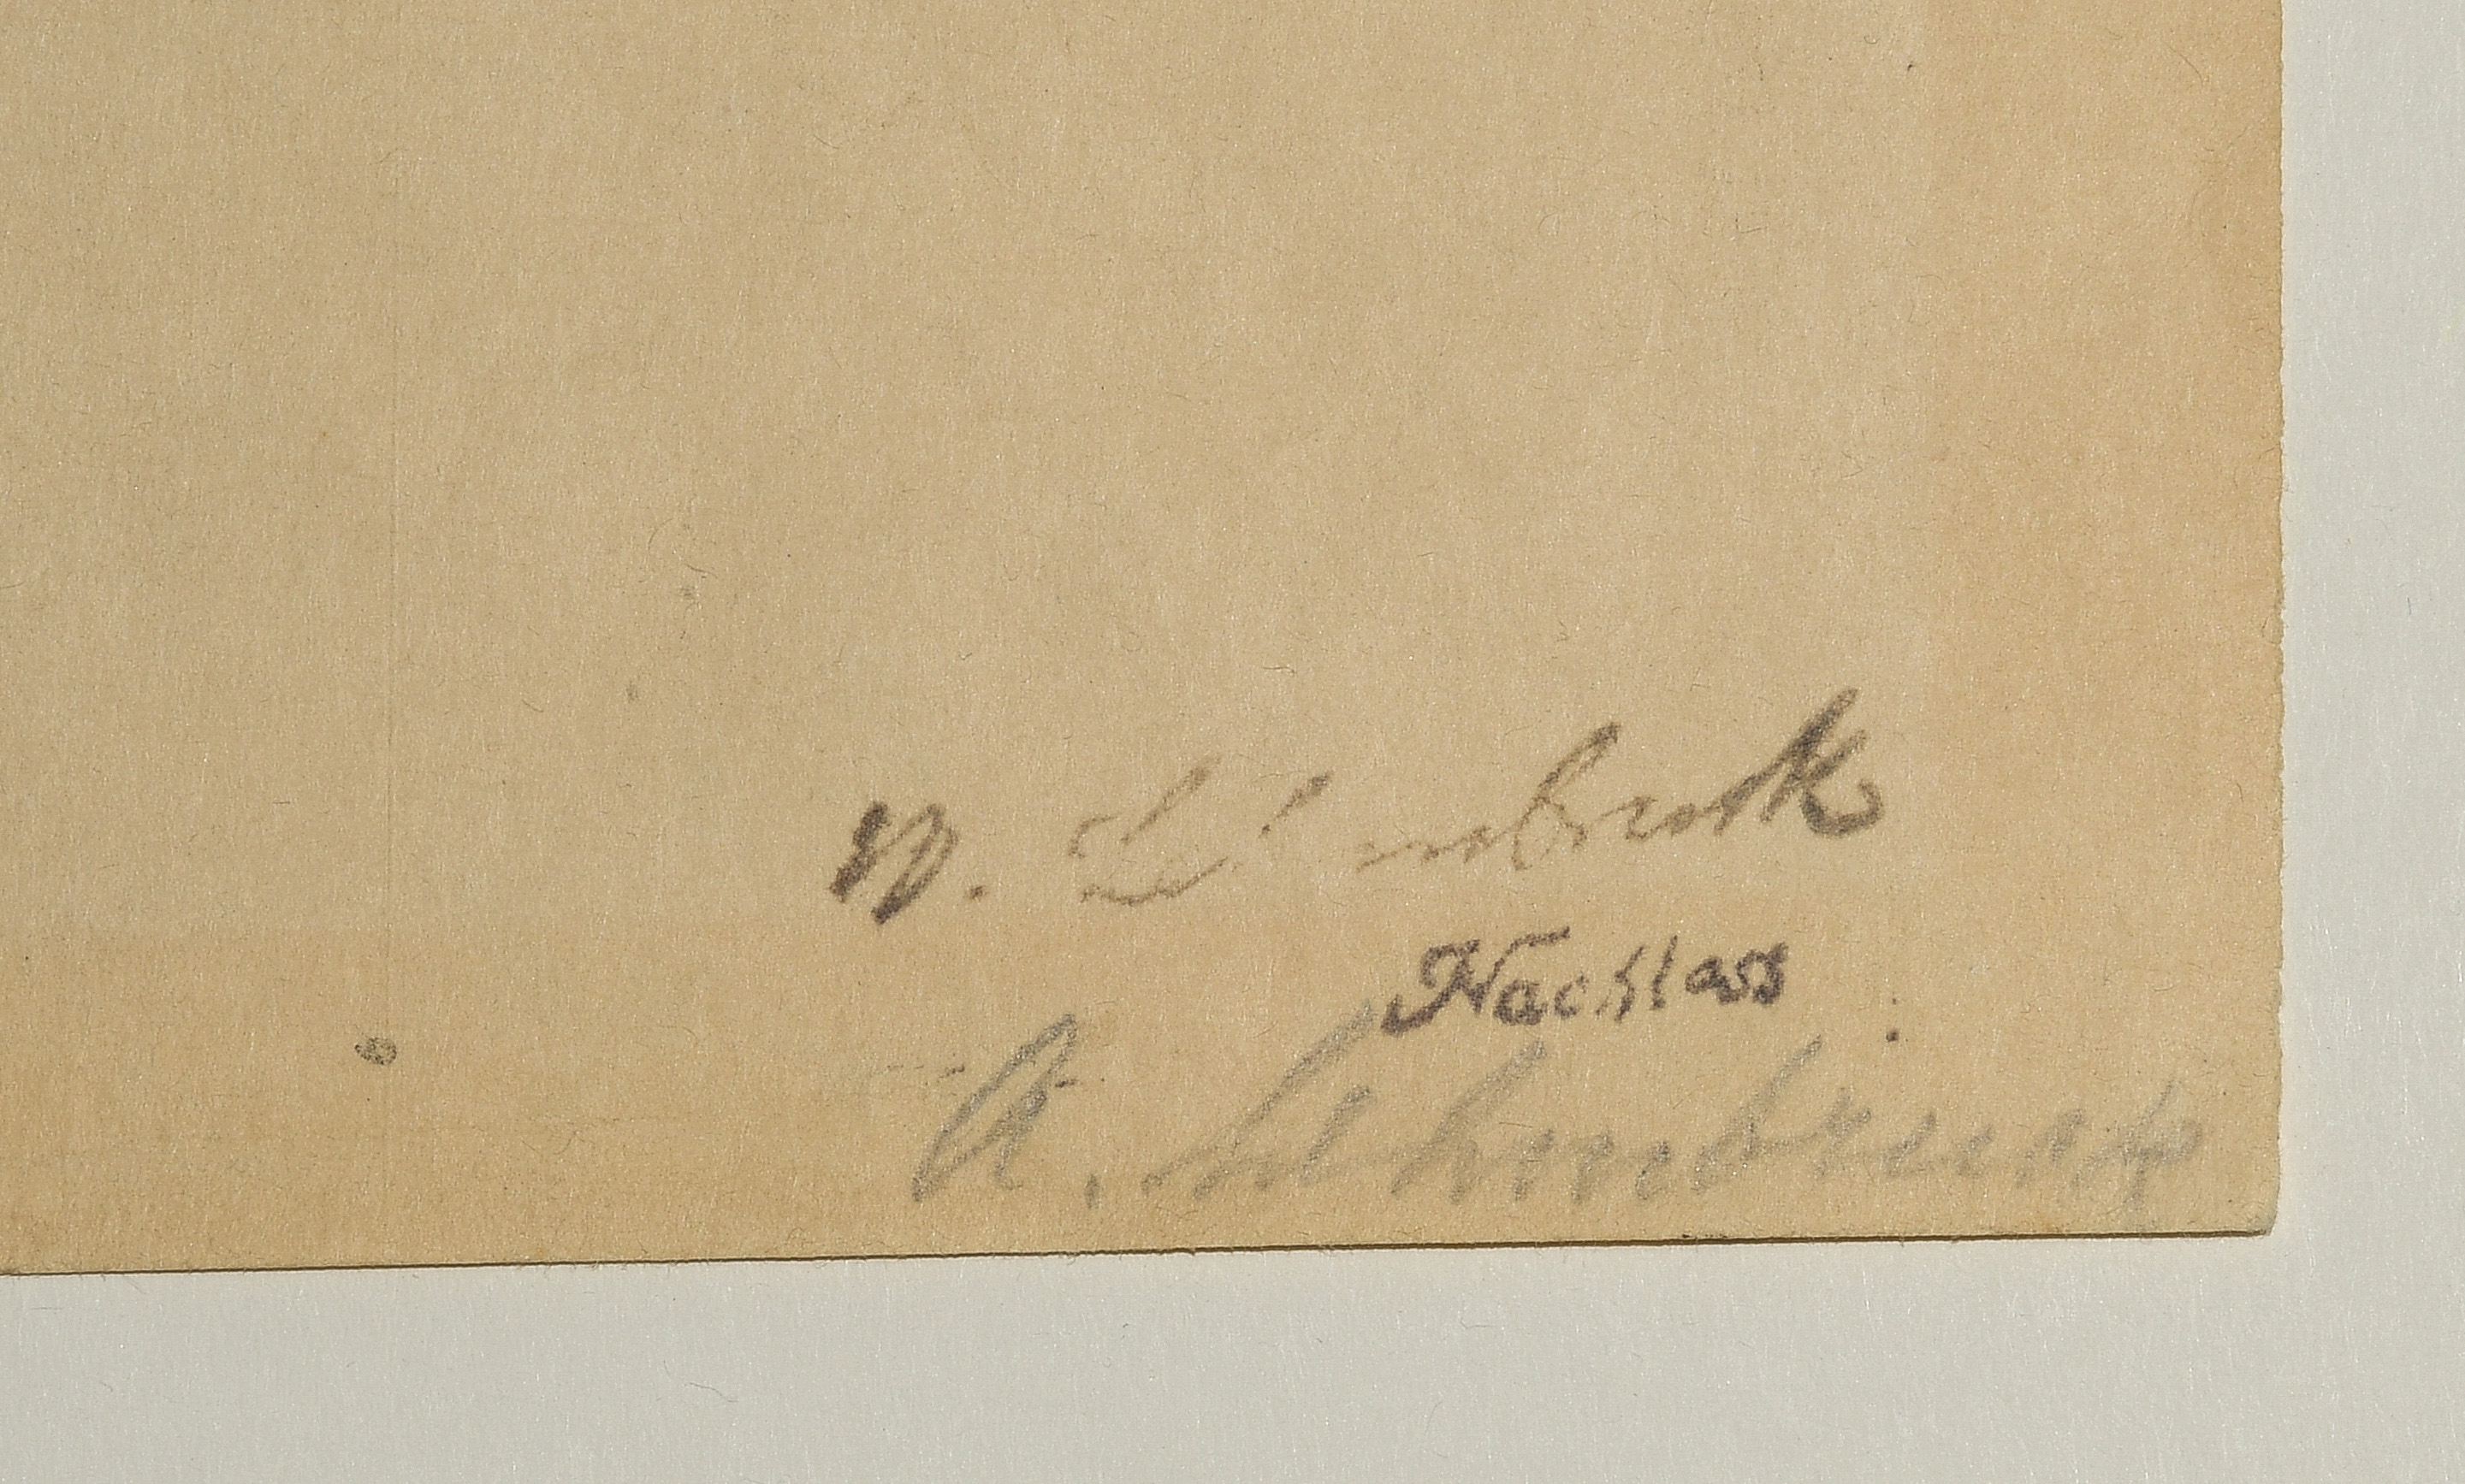 W. Lehmbruck
Nachlass
A. Lehmbruck